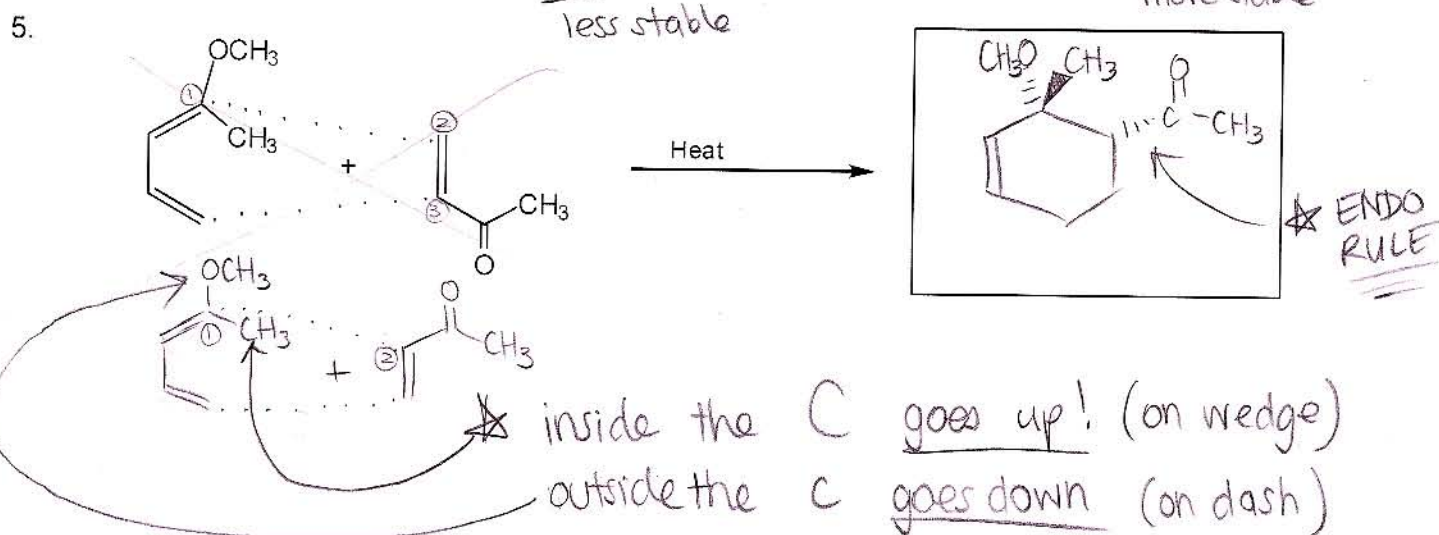 less stable
more stable
5.
OCH3
①
CH3
+
②
③
CH3
O
Heat
CH3O CH3
O
C - CH3
☆ ENDO
RULE
OCH3
①
CH3
+
②
O
CH3
☆ inside the C goes up! (on wedge)
outside the C goes down (on dash)